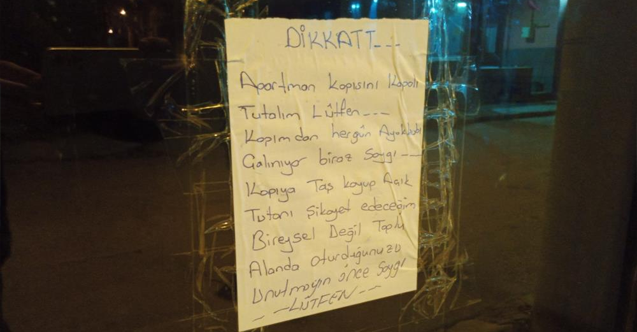 DİKKATT---
Apartman Kapısını Kapalı
Tutalım Lütfen---
Kapımdan hergün Ayakkabı
Çalınıyor biraz Saygı--
Kapıya Taş koyup Açık
Tutanı Şikayet edeceğim
Bireysel Değil Toplu
Alanda oturduğunuzu
Unutmayın önce Saygı
--LÜTFEN--